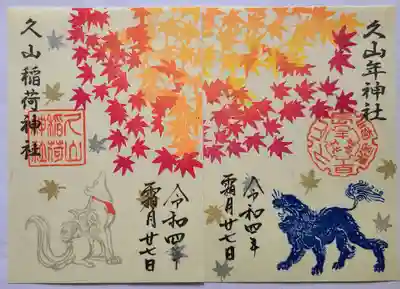 久山年神社
令和四年
霜月廿七日
久山稲荷神社
久山
稲荷
神社
令和四年
霜月廿七日